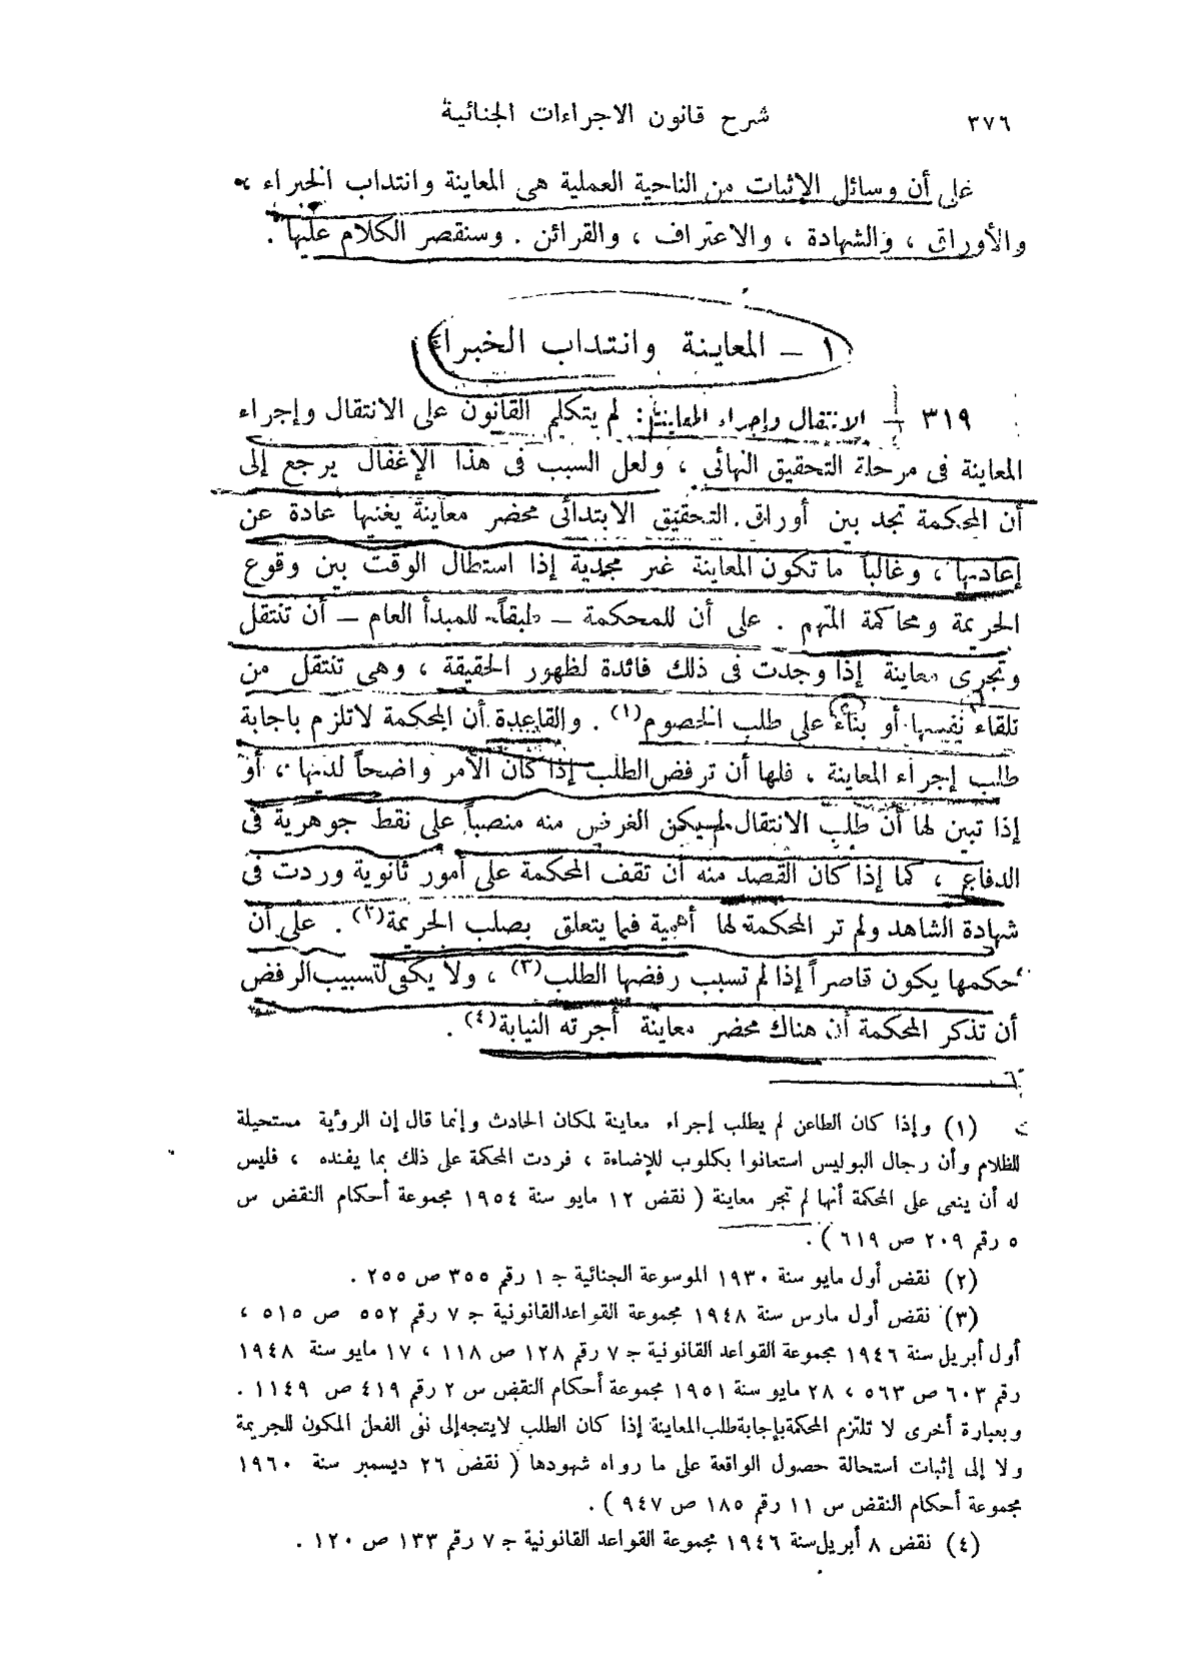 ٣٧٦ شرح قانون الاجراءات الجنائية
على أن وسائل الإثبات من الناحية العملية هى المعاينة وانتداب الخبراء ،
والأوراق ، والشهادة ، والاعتراف ، والقرائن . وسنقصر الكلام عليها .
١ — المعاينة وانتداب الخبراء
٣١٩ — الانتقال وإجراء المعاينة : لم يتكلم القانون على الانتقال وإجراء
المعاينة فى مرحلة التحقيق النهائى ، ولعل السبب فى هذا الإغفال يرجع إلى
أن المحكمة تجد بين أوراق التحقيق الابتدائى محضر معاينة يغنيها عادة عن
إعادتها ، وغالباً ما تكون المعاينة غير مجدية إذا استطال الوقت بين وقوع
الجريمة ومحاكمة المتهم . على أن للمحكمة — طبقاً للمبدأ العام — أن تنتقل
وتجرى معاينة إذا وجدت فى ذلك فائدة لظهور الحقيقة ، وهى تنتقل من
تلقاء نفسها أو بناء على طلب الخصوم (١) . والقاعدة أن المحكمة لا تلزم باجابة
طلب إجراء المعاينة ، فلها أن ترفض الطلب إذا كان الأمر واضحاً لديها ، أو
إذا تبين لها أن طلب الانتقال لم يكن الغرض منه منصباً على نقط جوهرية فى
الدفاع ، كما إذا كان القصد منه أن تقف المحكمة على أمور ثانوية وردت فى
شهادة الشاهد ولم تر المحكمة لها أهمية فيما يتعلق بصلب الجريمة (٢) . على أن
حكمها يكون قاصراً إذا لم تسبب رفضها الطلب (٣) ، ولا يكفى لتسبيب الرفض
أن تذكر المحكمة أن هناك محضر معاينة أجرته النيابة (٤) .
(١) وإذا كان الطاعن لم يطلب إجراء معاينة لمكان الحادث وإنما قال إن الرؤية مستحيلة
للظلام وأن رجال البوليس استعانوا بكلوب للإضاءة ، فردت المحكمة على ذلك بما يفنده ، فليس
له أن ينعى على المحكمة أنها لم تجر معاينة ( نقض ١٢ مايو سنة ١٩٥٤ مجموعة أحكام النقض س
٥ رقم ٢٠٩ ص ٦١٩ ) .
(٢) نقض أول مايو سنة ١٩٣٠ الموسوعة الجنائية ج ١ رقم ٣٥٥ ص ٢٥٥ .
(٣) نقض أول مارس سنة ١٩٤٨ مجموعة القواعد القانونية ج ٧ رقم ٥٥٢ ص ٥١٥ ،
أول أبريل سنة ١٩٤٦ مجموعة القواعد القانونية ج ٧ رقم ١٢٨ ص ١١٨ ، ١٧ مايو سنة ١٩٤٨
رقم ٦٠٣ ص ٥٦٣ ، ٢٨ مايو سنة ١٩٥١ مجموعة أحكام النقض س ٢ رقم ٤١٩ ص ١١٤٩ .
وبعبارة أخرى لا تلتزم المحكمة بإجابة طلب المعاينة إذا كان الطلب لا يتجه إلى نفى الفعل المكون للجريمة
ولا إلى إثبات استحالة حصول الواقعة على ما رواه شهودها ( نقض ٢٦ ديسمبر سنة ١٩٦٠
مجموعة أحكام النقض س ١١ رقم ١٨٥ ص ٩٤٧ ) .
(٤) نقض ٨ أبريل سنة ١٩٤٦ مجموعة القواعد القانونية ج ٧ رقم ١٣٣ ص ١٢٠ .